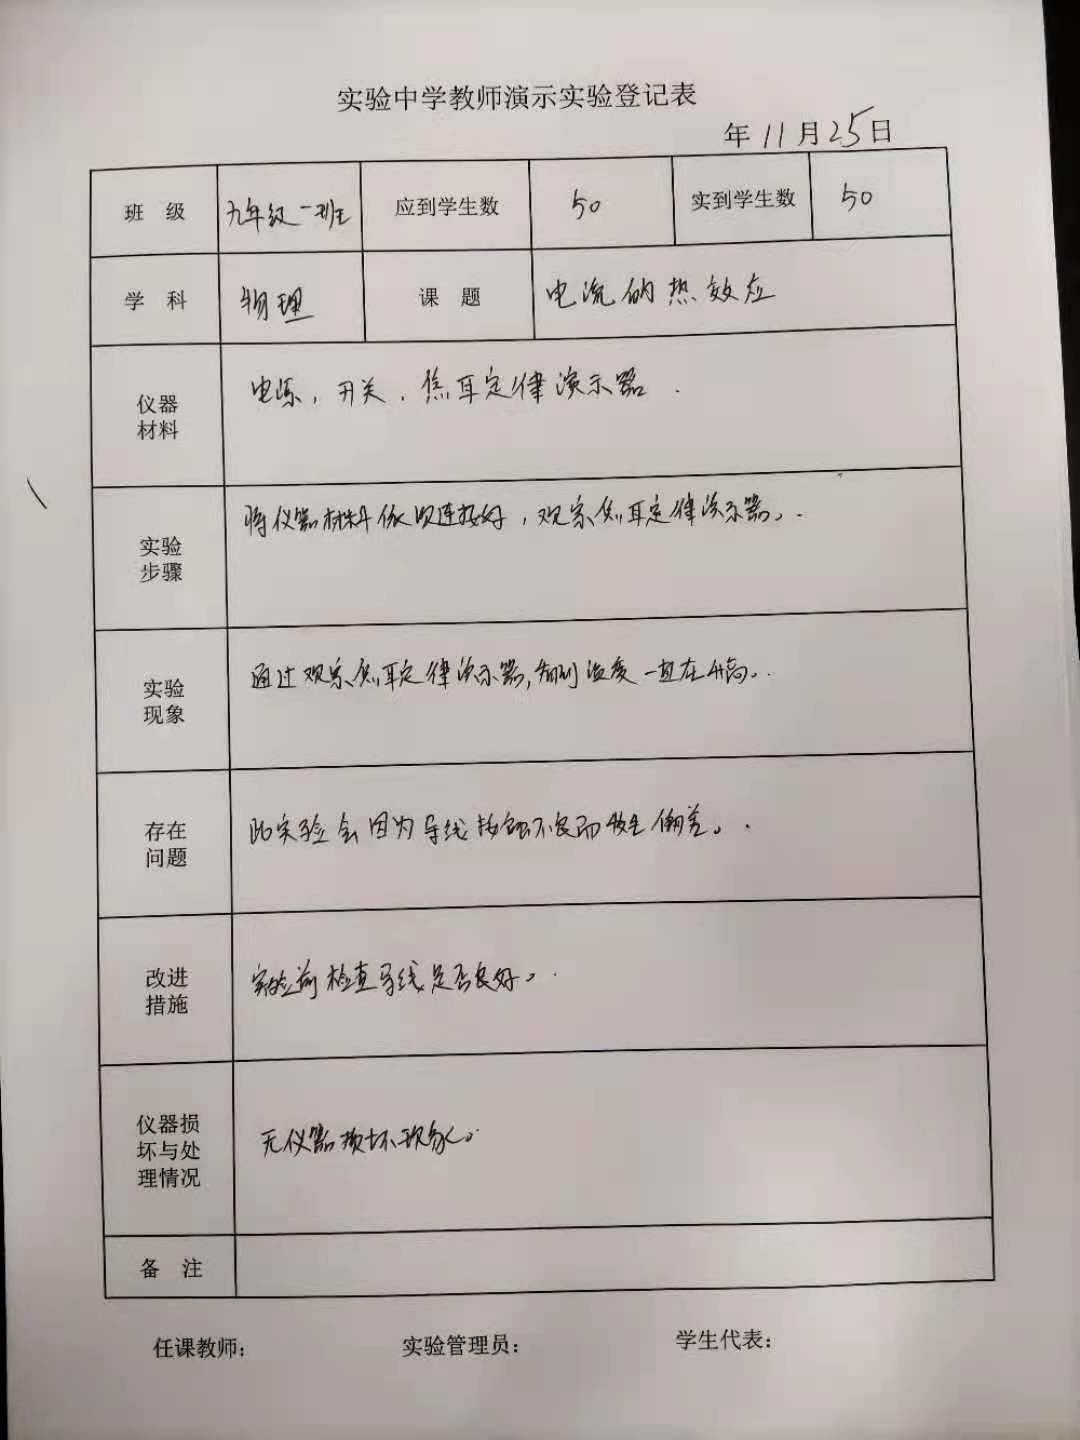 实验中学教师演示实验登记表
年11月25日
班 级 九年级一班 应到学生数 50 实到学生数 50
学 科 物理 课 题 电流的热效应
仪器
材料
电源,开关,焦耳定律演示器.
实验
步骤
将仪器材料依次连接好,观察焦耳定律演示器。
实验
现象
通过观察焦耳定律演示器,温度一直在升高。
存在
问题
此实验会因为导线接触不良而发生偏差。
改进
措施
实验前检查导线是否良好。
仪器损
坏与处
理情况
无仪器损坏现象。
备 注
任课教师: 实验管理员: 学生代表: